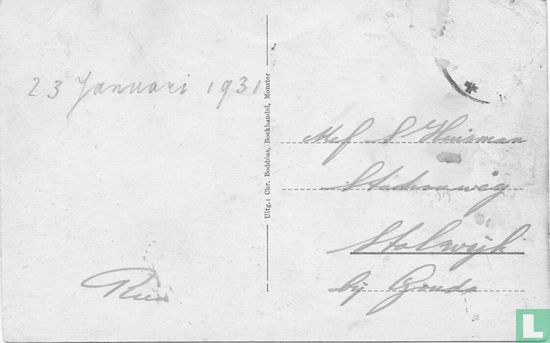 23 Januari 1931
Uitg.: Chr. Boddéus, Boekhandel, Monster
Mej S Huisman
Stolwijk
bij Gouda
Rie
L